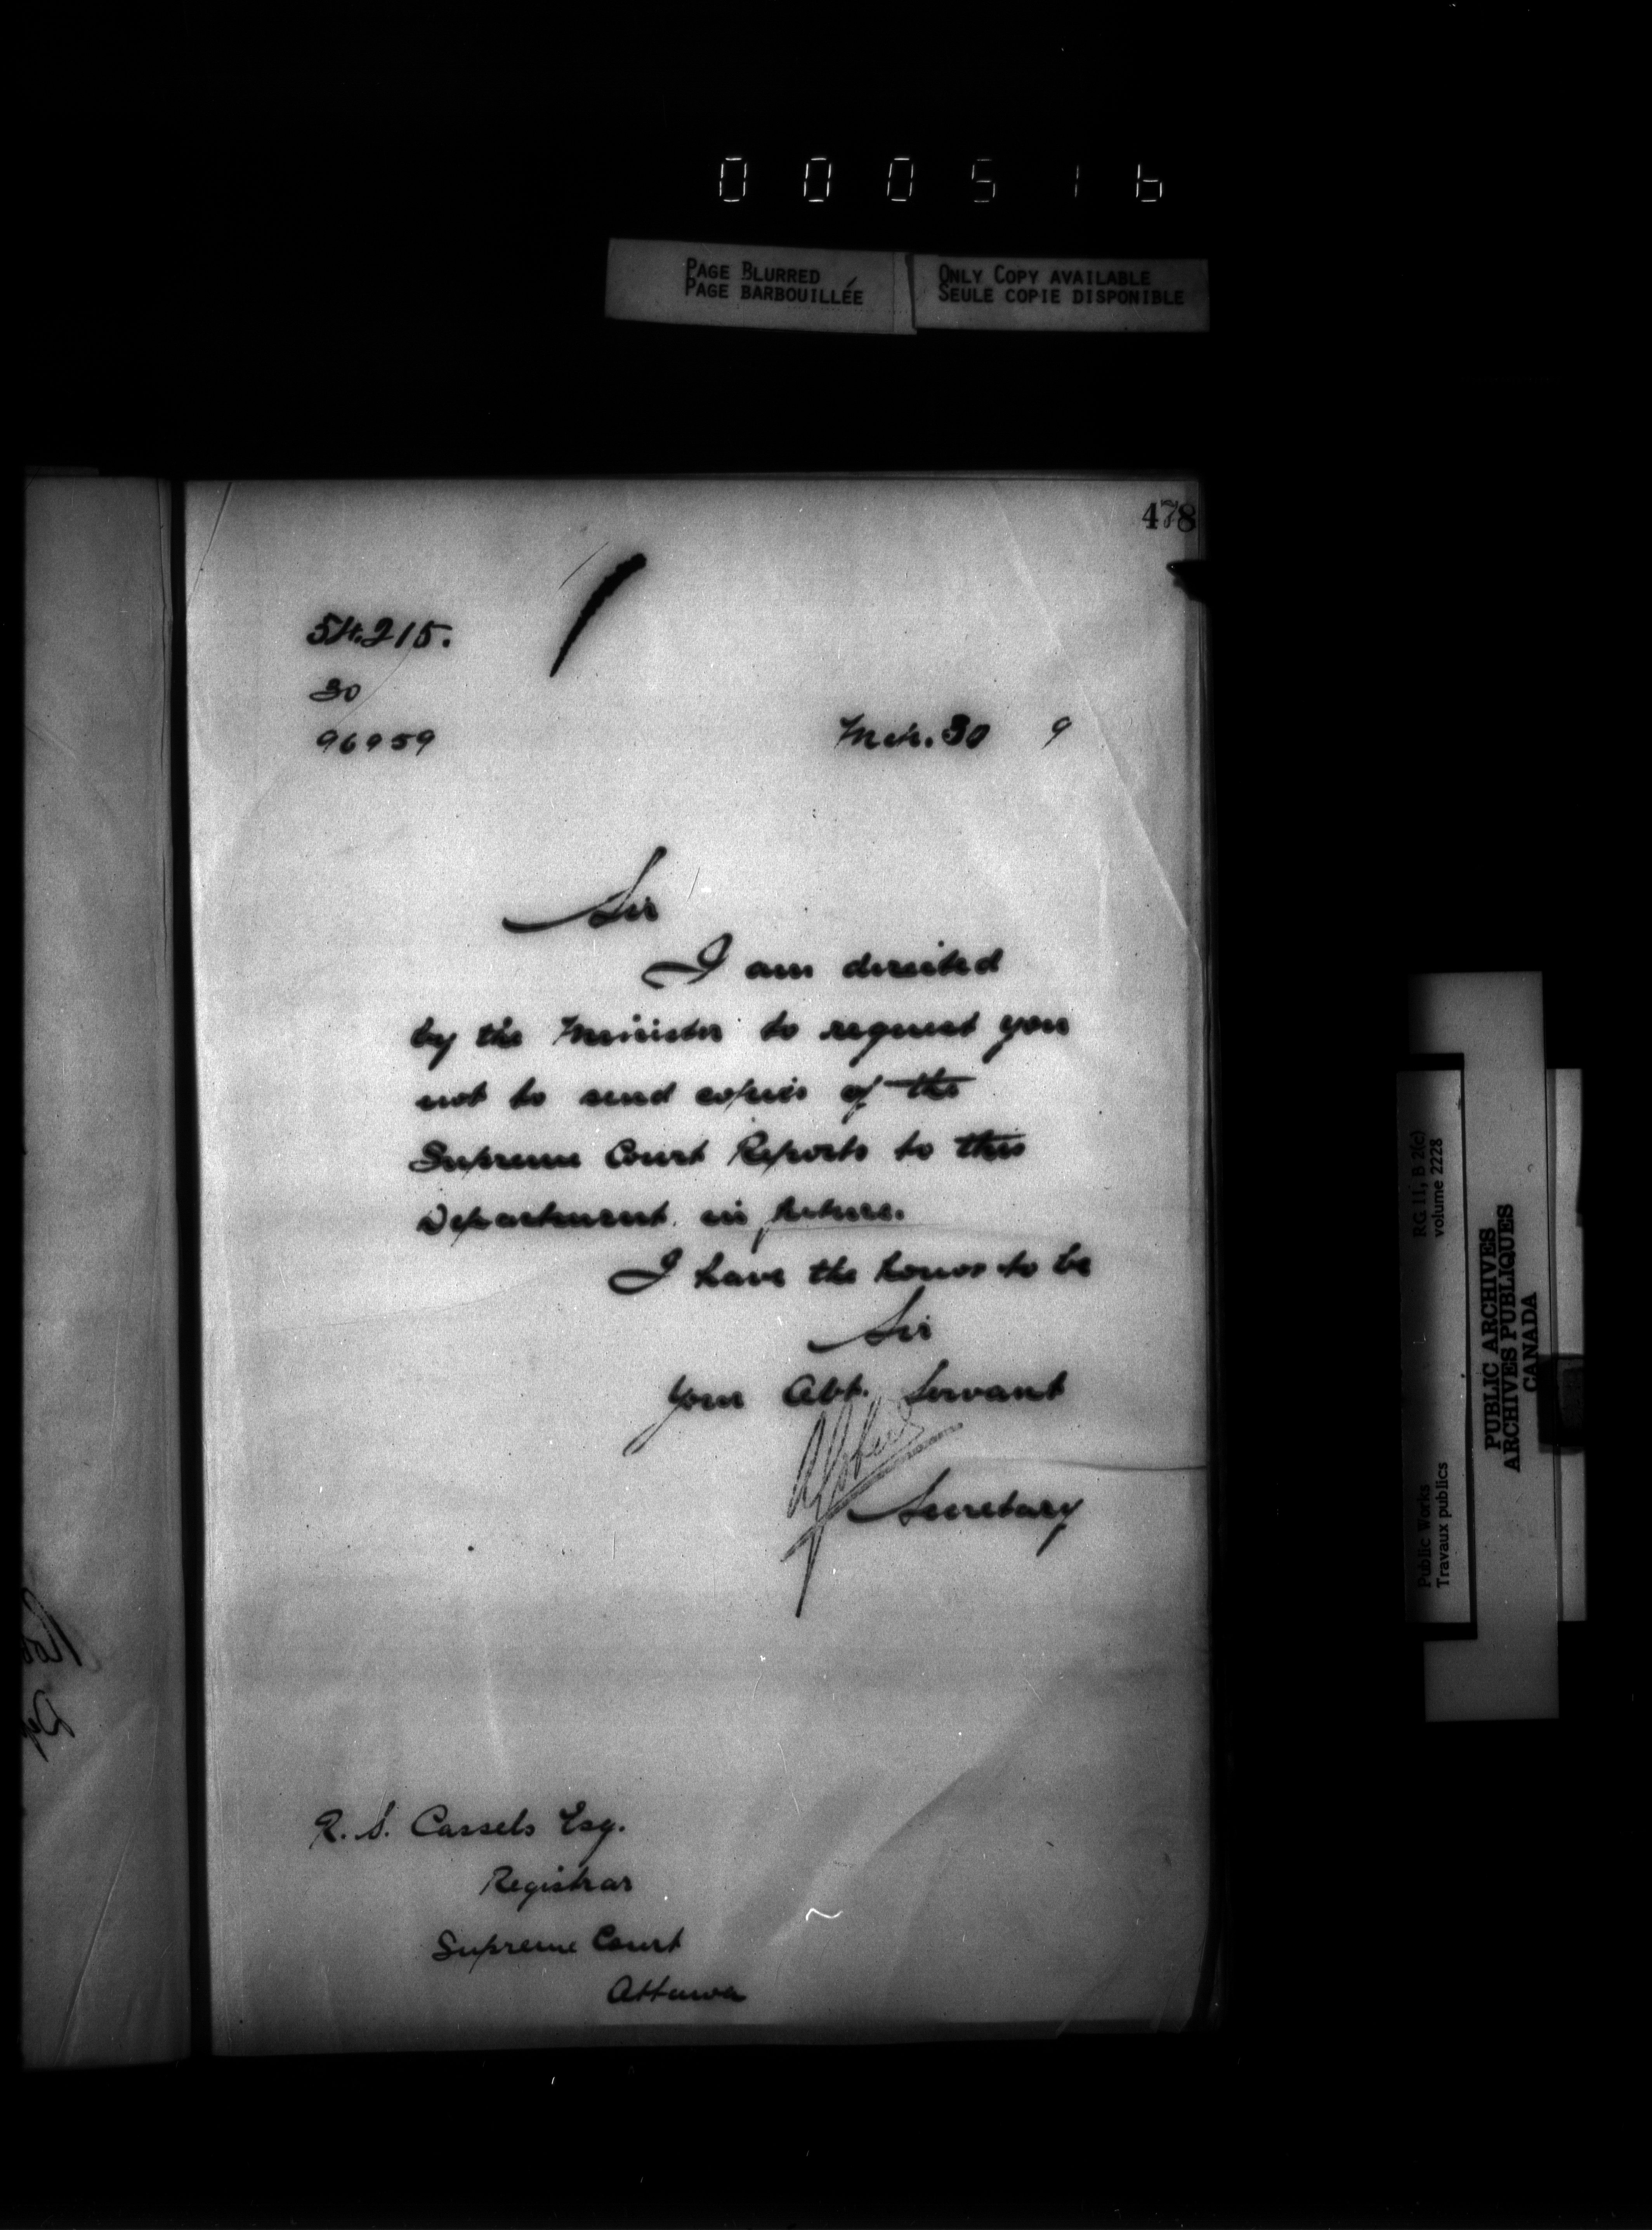 000516
PAGE BLURRED
PAGE BARBOUILLÉE
ONLY COPY AVAILABLE
SEULE COPIE DISPONIBLE
478
54.215.
30
96959
Mch. 30 9
Sir
I am directed
by the Minister to request you
not to send copies of the
Supreme Court Reports to this
Department in future.
I have the honor to be
Sir
Your Obt. Servant
Secretary
R. S. Cassels Esq.
Registrar
Supreme Court
Ottawa
RG 11, B 2(c)
volume 2228
Public Works
Travaux publics
PUBLIC ARCHIVES
ARCHIVES PUBLIQUES
CANADA